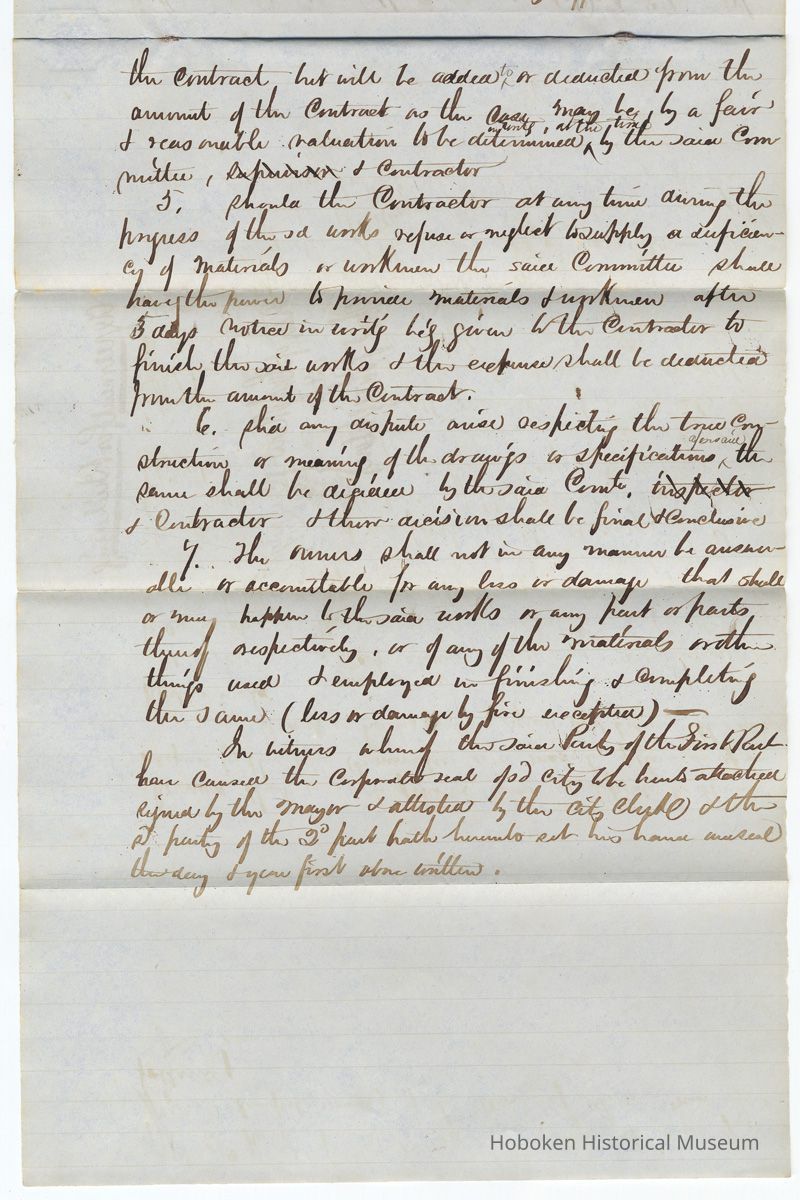 the contract but will be added to or deducted from the
amount of the Contract as the Case may be, by a fair
& reasonable valuation to be determined in writg, at the time, by the said Com
mittee, supervisor & Contractor
5. should the Contractor at any time during the
progress of the sd works refuse or neglect to supply a suficien-
cy of materials or workmen the said Committee shall
have the power to provide materials & workmen after
3 days notice in writg be'g given to the Contractor to
finish the said works & the expense shall be deducted
from the amount of the Contract.
6. shd any dispute arise respecting the true Con-
struction or meaning of the drawgs or specifications aforesaid, the
same shall be decided by the said Comte, inspector
& Contractor & their decision shall be final & Conclusive
7. The owners shall not in any manner be answer-
able or accountable for any loss or damage that shall
or may happen to the said works or any part or parts
thereof respectively, or of any of the materials or other
things used & employed in finishing & Completing
the same (loss or damage by fire excepted) —
In witness whereof the said Party of the First Part
have caused the corporate seal of sd city to be hereto attached
signed by the mayor & attested by the city clerk & the
sd party of the 2d part hath hereunto set his hand and seal
the day & year first above written.
Hoboken Historical Museum